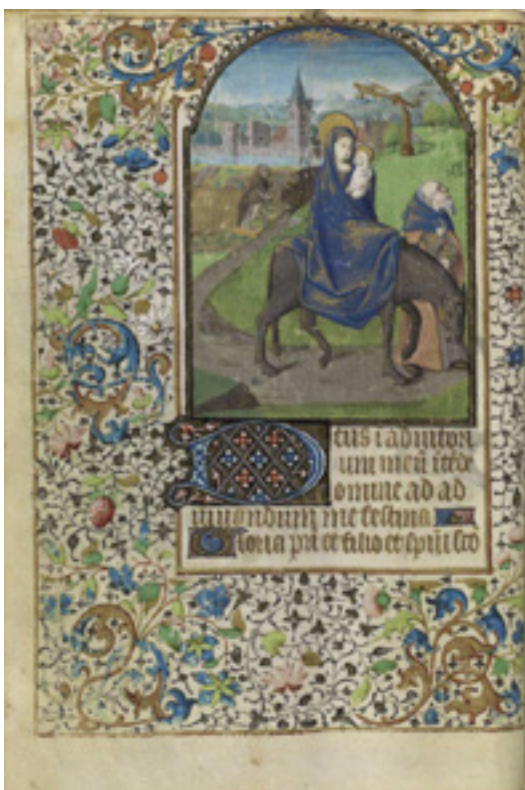 Deus i adiutori
um meū ītēde
omine ad ad
iuuandum me festina
Gloria pri et filio et spiri sco